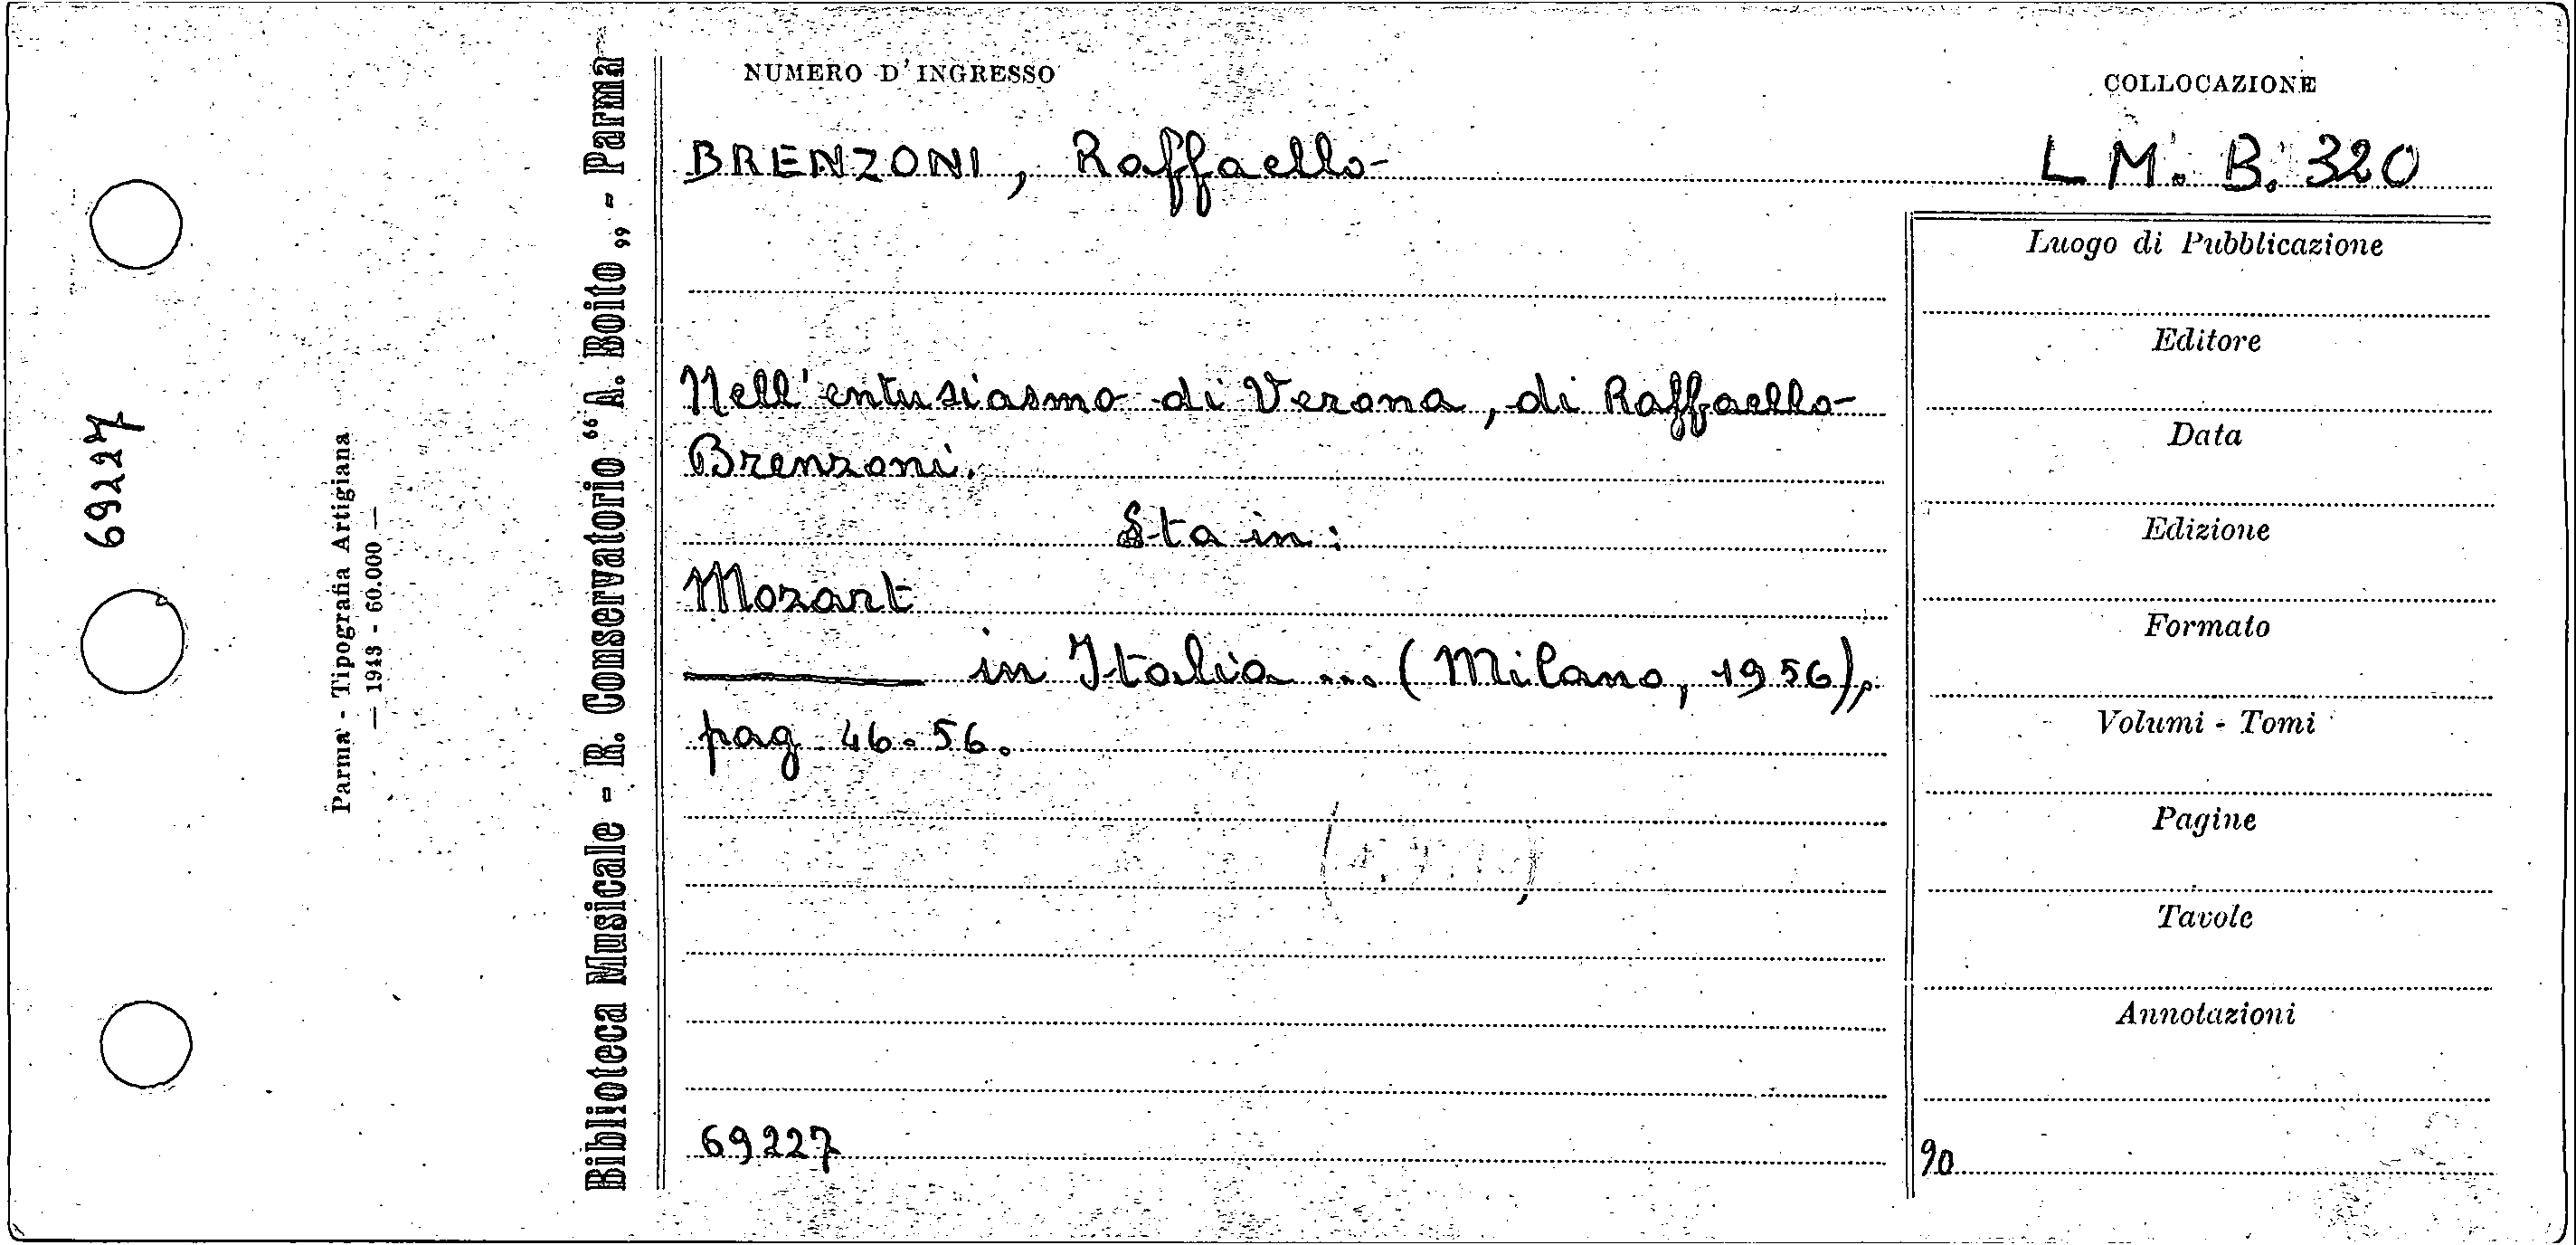 69227
Parma - Tipografia Artigiana
— 1943 - 60.000 —
Biblioteca Musicale - R. Conservatorio "A. Boito" - Parma
NUMERO D'INGRESSO
COLLOCAZIONE
BRENZONI, Raffaello
L M. B. 320
Nell'entusiasmo di Verona, di Raffaello
Brenzoni.
Sta in:
Mozart
——— in Italia ... (Milano, 1956),
pag 46-56.
69227
Luogo di Pubblicazione
Editore
Data
Edizione
Formato
Volumi - Tomi
Pagine
Tavole
Annotazioni
90